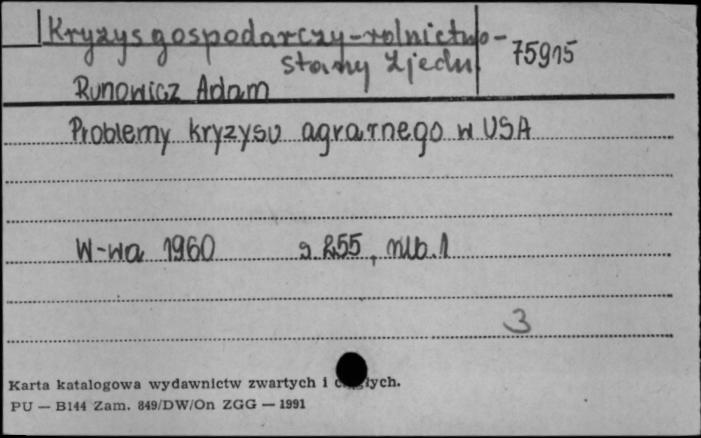 Kryzys gospodarczy-rolnictwo- 75915
Stany Zjedn.
Runowicz Adam
Problemy kryzysu agrarnego w USA
W-wa 1960 s. 255, nlb. 1
3
Karta katalogowa wydawnictw zwartych i
PU — B144 Zam. 849/DW/On ZGG — 1991